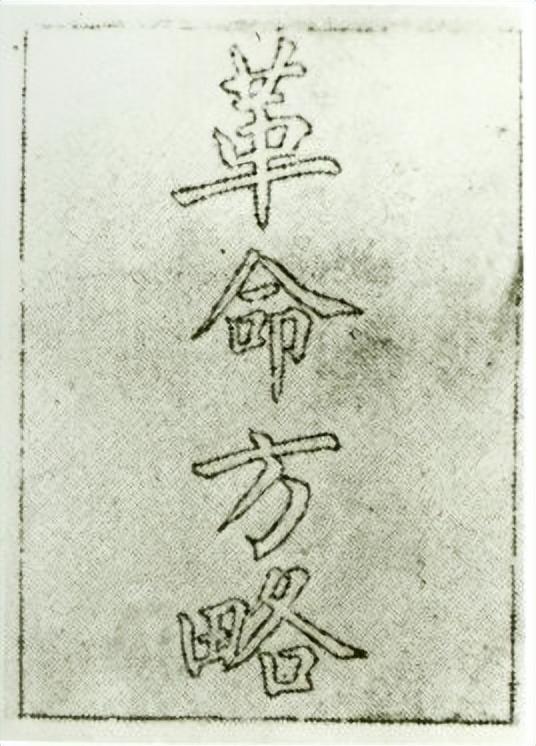 革命方略